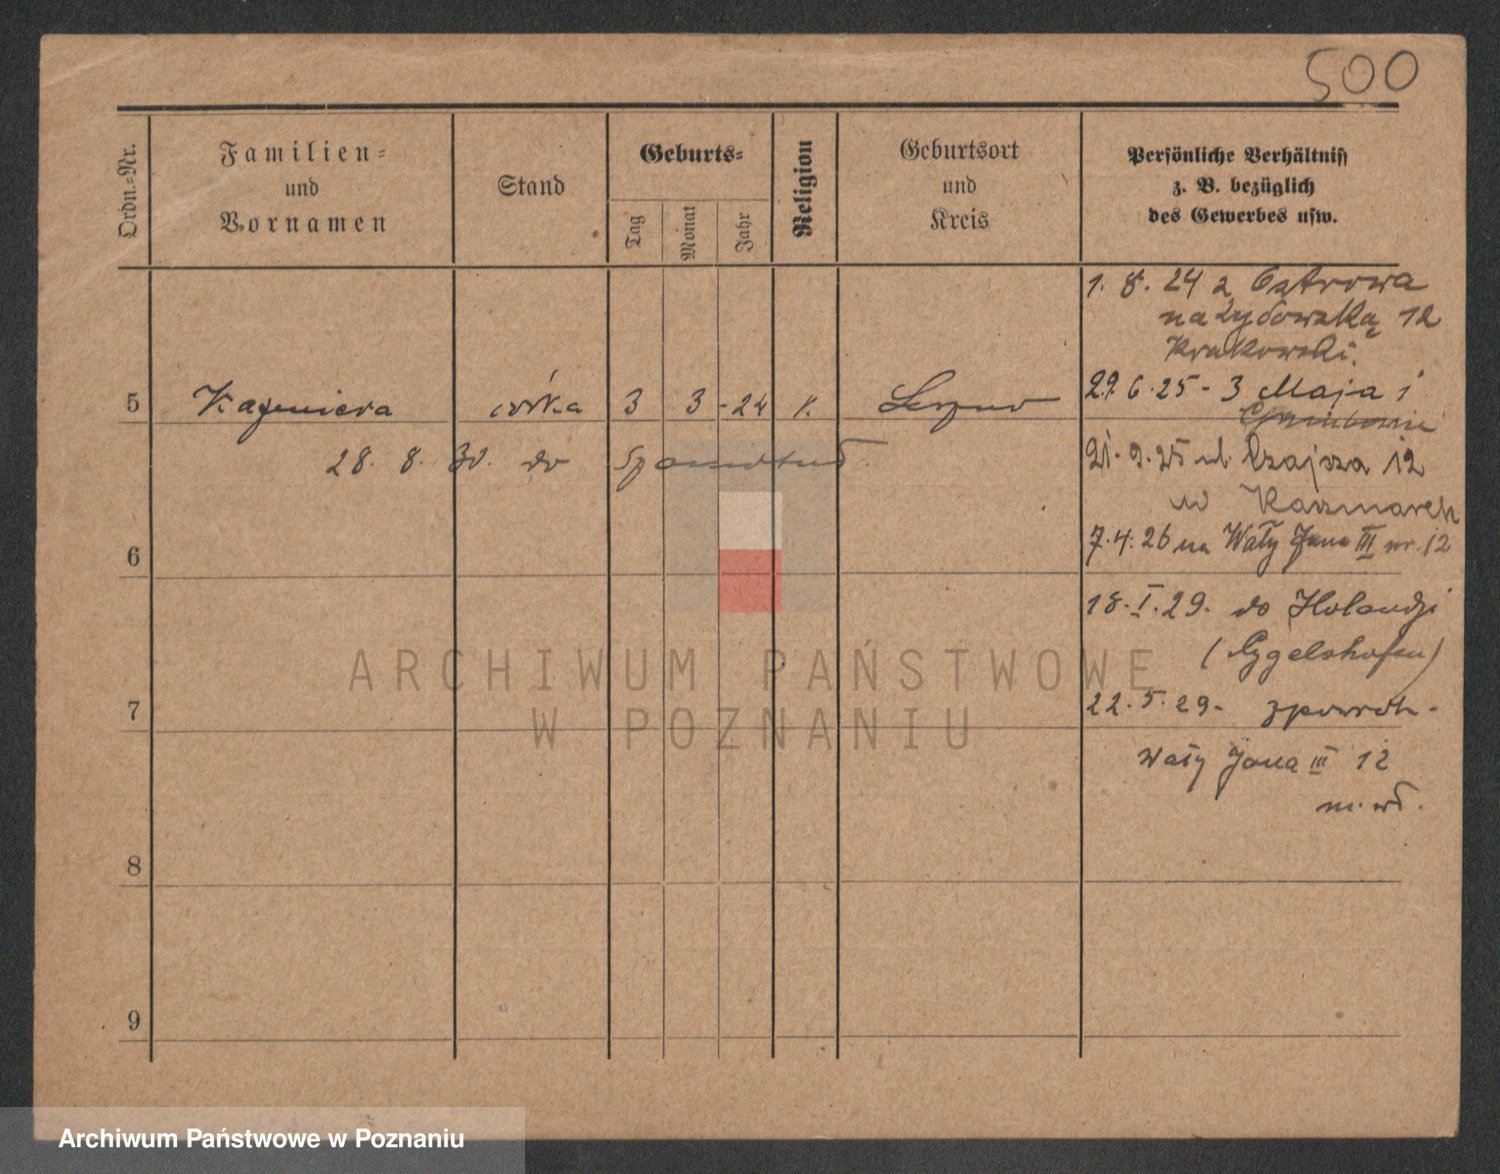 500
Ordn.-Nr.
Familien-
und
Vornamen
Stand
Geburts-
Tag
Monat
Jahr
Religion
Geburtsort
und
Kreis
Persönliche Verhältniss
z. B. bezüglich
des Gewerbes usw.
1. 8. 24 z Ostrowa
na Żydowską 12
Krakowski.
5 Kazimiera córka 3 3 - 24 k. Leszno
27. 6. 25 - 3 Maja 1
28. 8. 30. do
21. 9. 25 ul. 12
w Kaczmarek
6
7. 4. 26 na Wały Jana III nr. 12
18. I. 29. do Holandji
(Eygelshofen)
7
22. 5. 29 - zpowrót -
Wały Jana III 12
8
9
ARCHIWUM PAŃSTWOWE
W POZNANIU
Archiwum Państwowe w Poznaniu